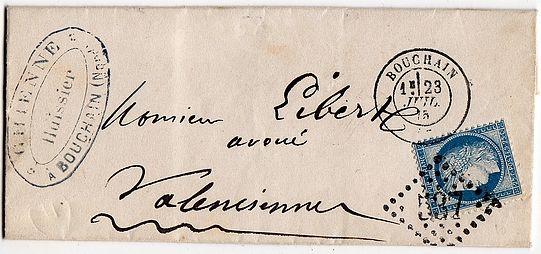 GHIENNE
Huissier
A BOUCHAIN (Nord)
BOUCHAIN
1E 23
JUIL.
75
Monsieur Libert
avoué
Valenciennes
557